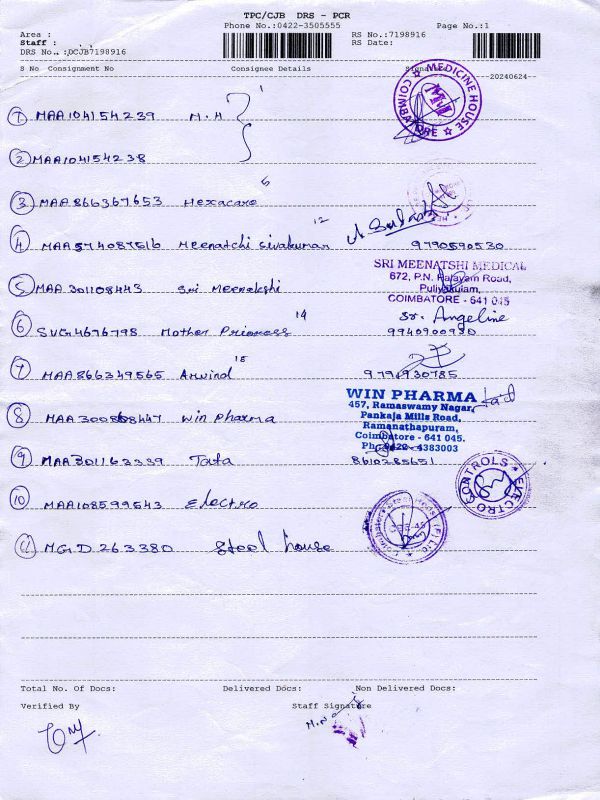 TPC/CJB DRS - PCR
Phone No.:0422-3505555 Page No.:1
Area : RS No.:7198916
Staff : RS Date:
DRS No..:DCJB7198916
S No Consignment No Consignee Details Signature
20240624--
MEDICINE HOUSE COIMBATORE
1 MAA104154239 M.H
2 MAA104154238
3 MAA866367653 Hexacare 5
4 MAA574087516 Meenatchi Sivakumar 12 9790590530
SRI MEENATSHI MEDICAL
672, P.N. Palayam Road,
Puliyakulam,
COIMBATORE - 641 045
5 MAA301108443 Sri Meenakshi
6 SVG4676798 Mother Princess 14 Sr. Angeline
9940900930
7 MAA866349565 Arvind 15 9794930785
WIN PHARMA
457, Ramaswamy Nagar,
Pankaja Mills Road,
Ramanathapuram,
Coimbatore - 641 045.
Ph: 0422-4383003
8 MAA300868447 Win Pharma
9 MAA301163339 Tata 8610285651
ELECTRO CONTROLS
10 MAA108599543 Electro
11 MGD263380 Steel house
Total No. Of Docs: Delivered Docs: Non Delivered Docs:
Verified By Staff Signature